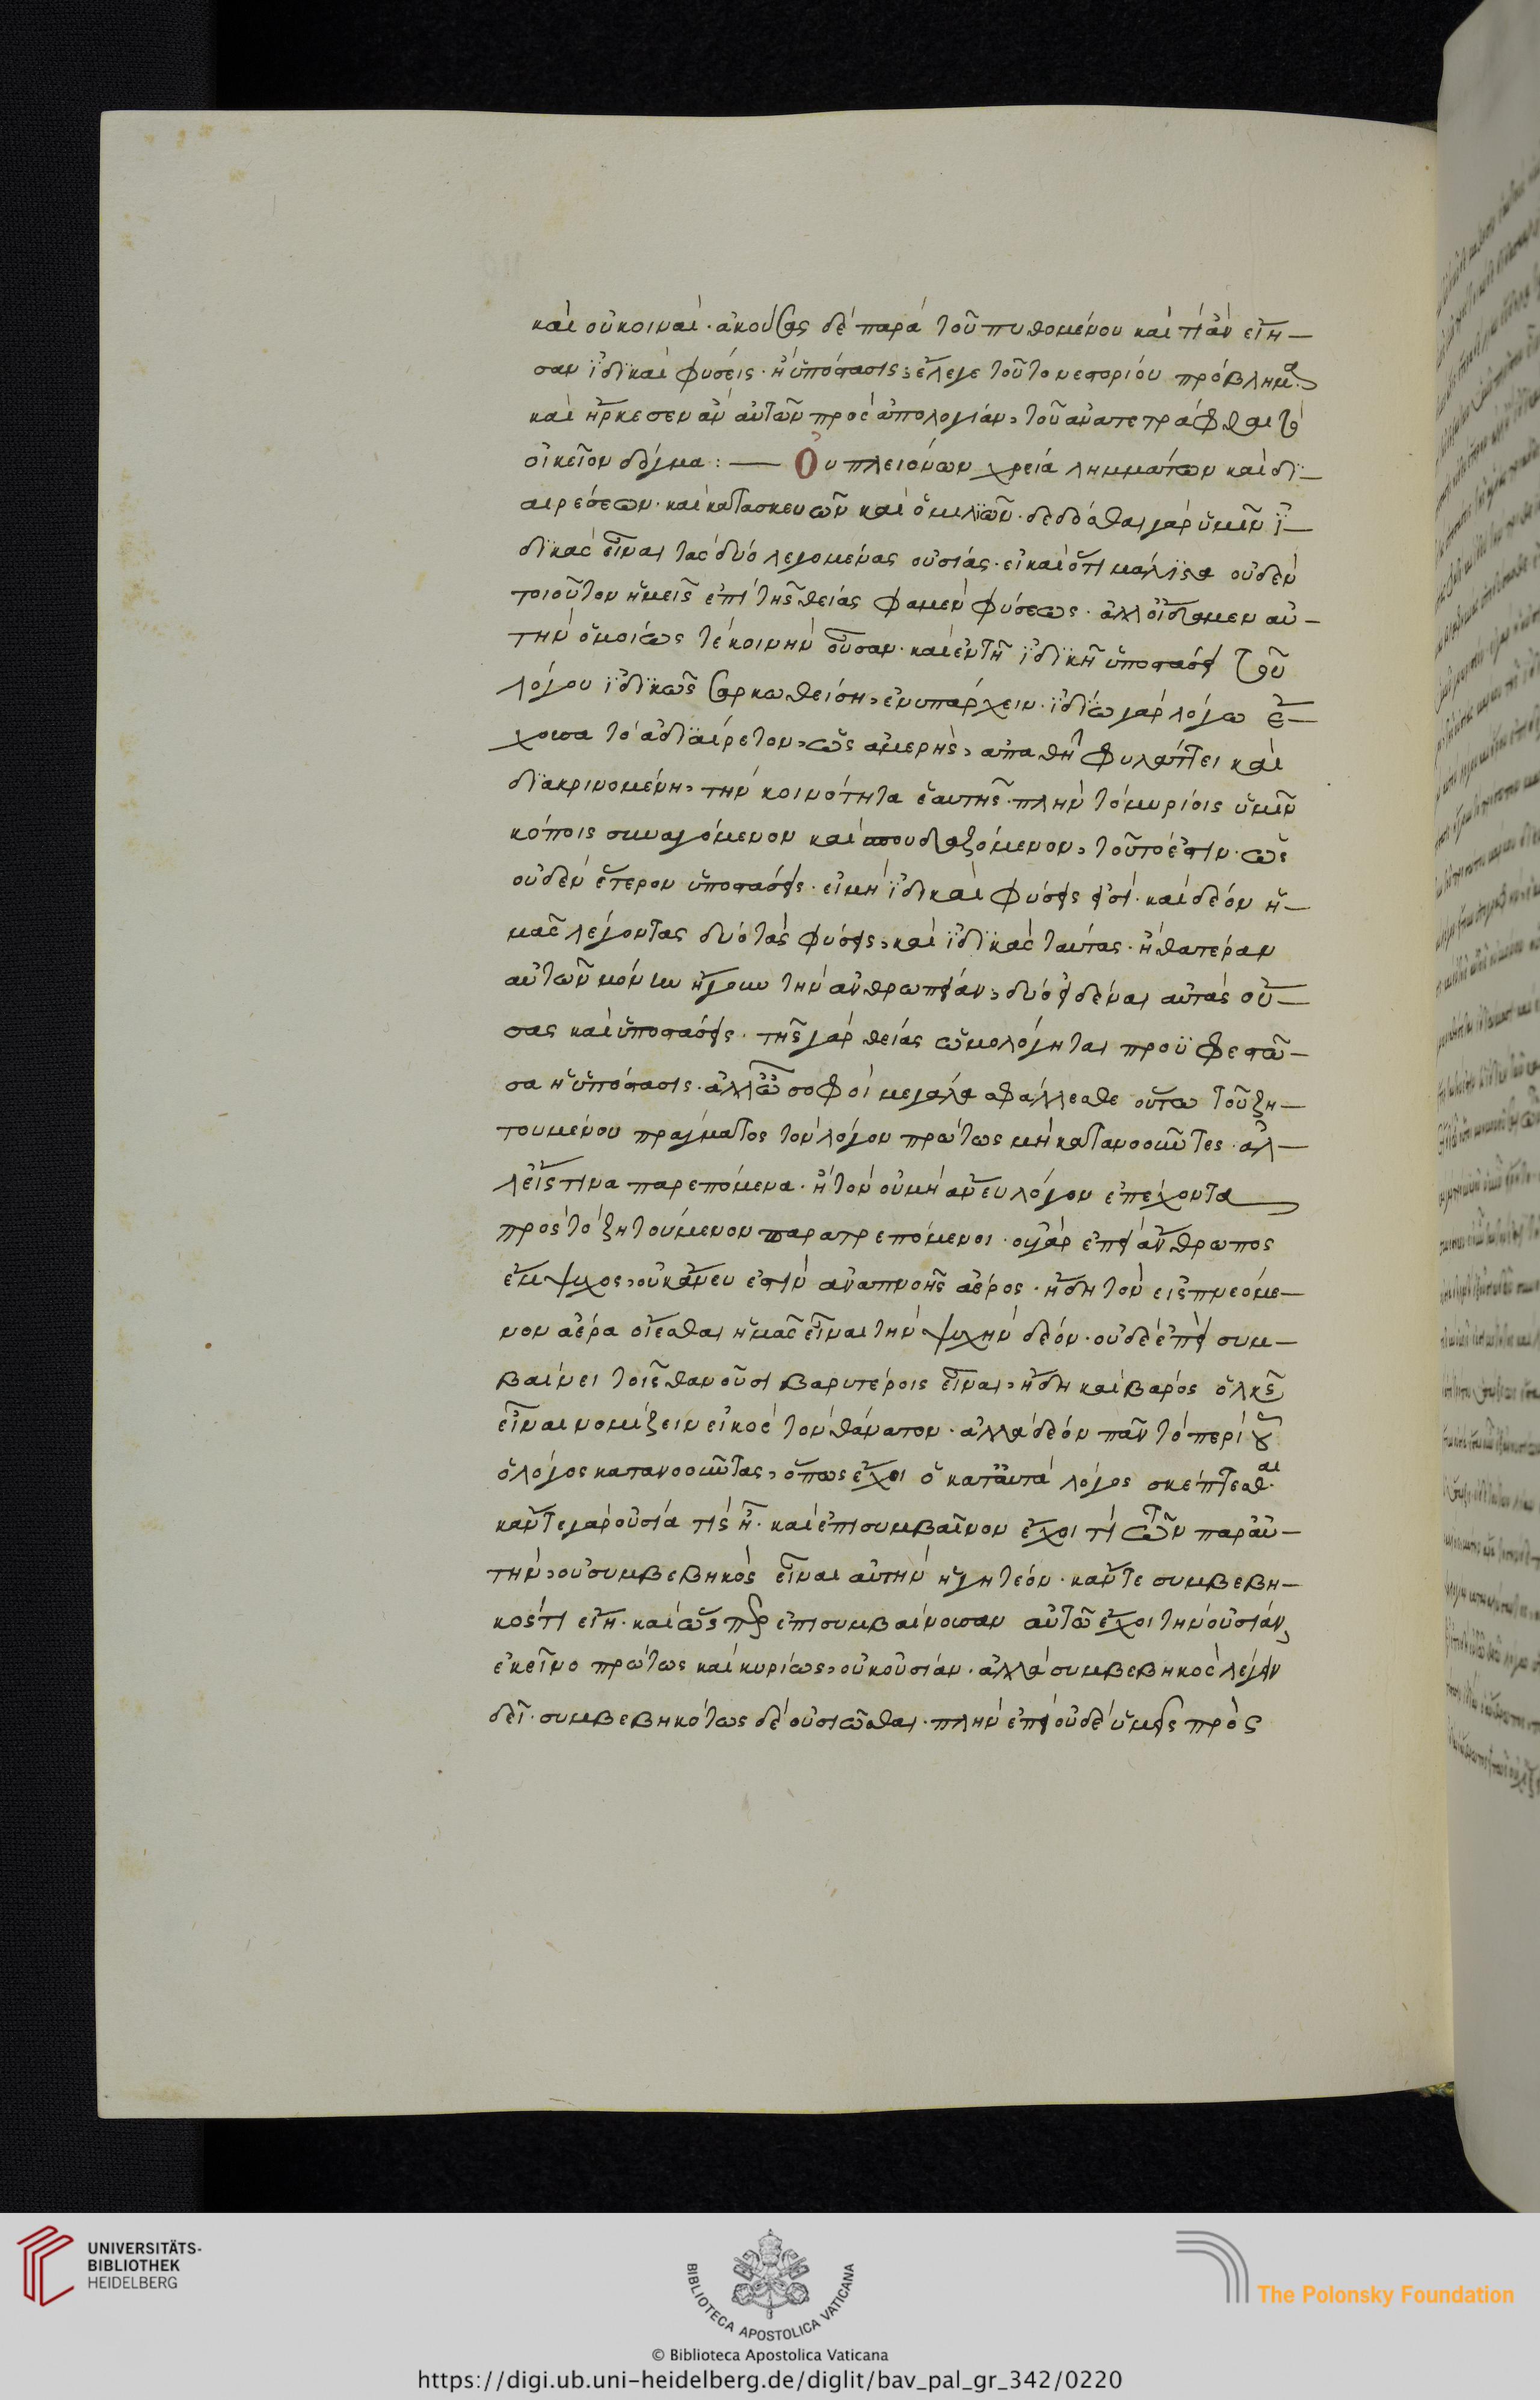 καὶ οὐ κοιναί· ἀκούσας δὲ παρὰ τοῦ πυθομένου καὶ τί ἂν εἴη-
σαν ἰδικαὶ φύσεις· ἢ ὑπόστασις; ἔλεγε τοῦτο νεστορίου πρόβλημα
καὶ ἤρκεσεν ἂν αὐτῶν πρὸς ἀπολογίαν, τοῦ ἀνατετράφθαι τὸ
οἰκεῖον δόγμα: — Οὐ πλειόνων χρεία λημμάτων καὶ δι-
αιρέσεων· καὶ κατασκευῶν καὶ ὁμιλιῶν· δεδόσθαι γὰρ ὑμῖν ἰ-
δικὰς εἶναι τὰς δύο λεγομένας οὐσίας· εἰ καὶ ὅτι μάλιστα οὐδὲν
τοιοῦτον ἡμεῖς ἐπὶ τῆς θείας φαμὲν φύσεως· ἀλλ' οἴδαμεν αὐ-
τὴν ὁμοίως τε κοινὴν οὖσαν· καὶ ἐν τῇ ἰδικῇ ὑποστάσει τοῦ
λόγου ἰδικῶς σαρκωθείση, ἐνυπάρχειν· ἰδίω γὰρ λόγω ἔ-
χουσα τὸ ἀδιαίρετον, ὡς ἀμερὴς, ἀπαθῆ φυλάττει καὶ
διακρινομένη, τὴν κοινότητα ἑαυτῆς· πλὴν τὸ μυρίοις ὑμῖν
κόποις συναγόμενον καὶ σπουδαζόμενον, τοῦτό ἐστιν· ὡς
οὐδὲν ἕτερον ὑποστάσεις· εἰ μὴ ἰδικαὶ φύσεις εἰσί· καὶ δέον ἡ-
μᾶς λέγοντας δύο τὰς φύσεις, καὶ ἰδικὰς ταύτας· ἢ θατέραν
αὐτῶν μόνην ἤγουν τὴν ἀνθρωπείαν, δύο εἰδέναι αὐτὰς οὔ-
σας καὶ ὑποστάσεις· τῆς γὰρ θείας ὡμολόγηται προϋφεστῶ-
σα ἡ ὑπόστασις· ἀλλ' ὦ σοφοὶ μεγάλα σφάλλεσθε οὕτω τοῦ ζη-
τουμένου πράγματος τὸν λόγον πρώτως μὴ κατανοοῦντες· ἀλ-
λ' εἴς τινα παρεπόμενα· ἢ τὸν οὐ μὴ ἄνευ λόγον ἐπέχοντα
πρὸς τὸ ζητούμενον παρατρεπόμενοι· οὐ γὰρ ἐπεὶ ἄνθρωπος
ἔμψυχος, οὐκ ἄνευ ἐστὶν ἀναπνοῆς ἀέρος· ἤδη τὸν εἰσπνεόμε-
νον ἀέρα οἴεσθαι ἡμᾶς εἶναι τὴν ψυχὴν δέον· οὐδὲ ἐπεὶ συμ-
βαίνει τοῖς θανοῦσι βαρυτέροις εἶναι, ἤδη καὶ βάρος ὁλκῆς
εἶναι νομίζειν εἰκὸς τὸν θάνατον· ἀλλὰ δέον πᾶν τὸ περὶ οὗ
ὁ λόγος κατανοοῦντας, ὅπως ἔχοι ὁ κατ' αὐτὰ λόγος σκέπτεσθαι·
κἄν τε γὰρ οὐσία τὶς ᾖ· καὶ ἐπισυμβαῖνον ἔχοι τὶ τῶν παρ' αὐ-
τὴν, οὐ συμβεβηκὸς εἶναι αὐτὴν ἡγητέον· κἄν τε συμβεβη-
κός τι εἴη· καὶ ὥσπερ ἐπισυμβαίνουσαν αὐτῶ ἔχοι τὴν οὐσίαν,
ἐκεῖνο πρώτως καὶ κυρίως, οὐκ οὐσίαν· ἀλλὰ συμβεβηκὸς λέγειν
δεῖ· συμβεβηκότως δὲ οὐσιῶσθαι· πλὴν ἐπεὶ οὐδὲ ὑμεῖς πρὸς
UNIVERSITÄTS-
BIBLIOTHEK
HEIDELBERG
BIBLIOTECA APOSTOLICA VATICANA
The Polonsky Foundation
© Biblioteca Apostolica Vaticana
https://digi.ub.uni-heidelberg.de/diglit/bav_pal_gr_342/0220